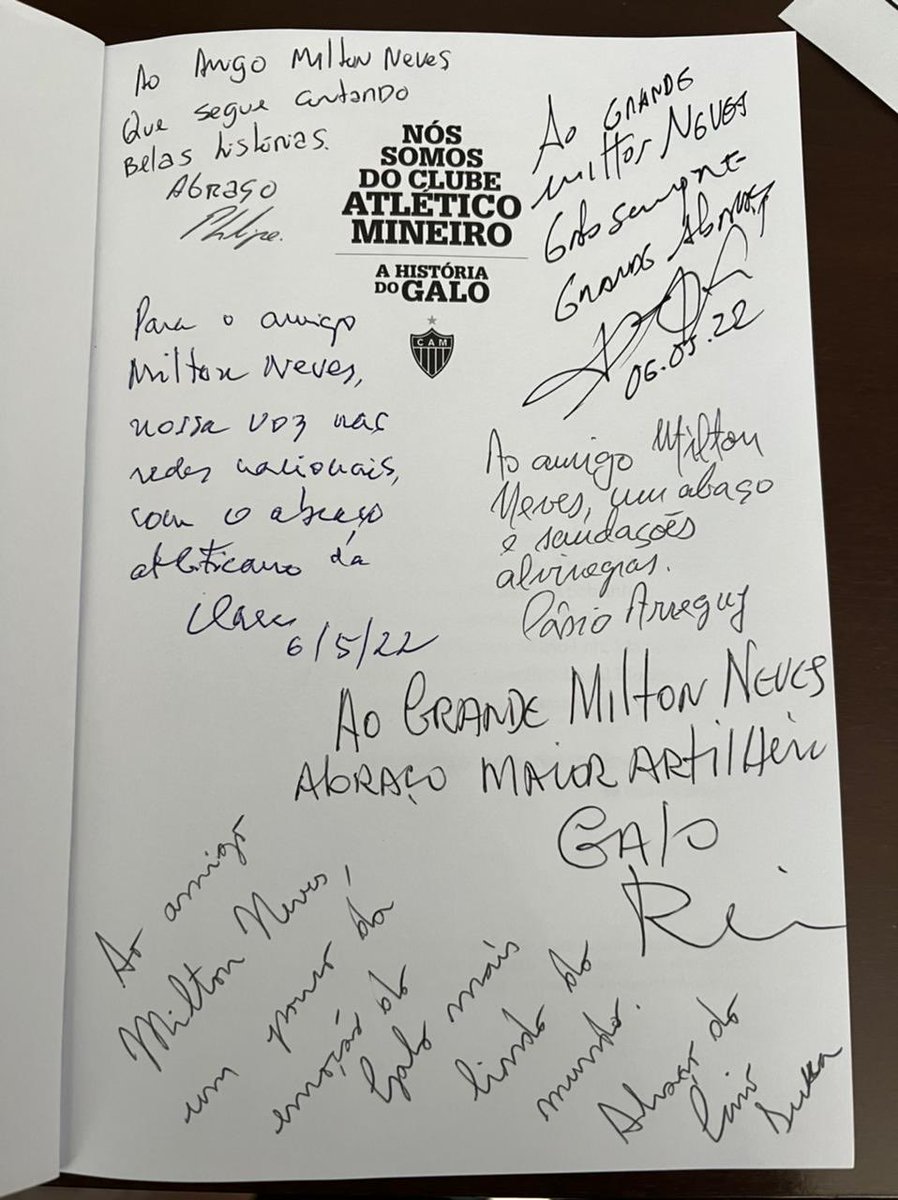 Ao Amigo Milton Neves
Que segue contando
Belas histórias.
Abraço
Philipe.
NÓS
SOMOS
DO CLUBE
ATLÉTICO
MINEIRO
A HISTÓRIA
DO GALO
CAM
Ao GRANDE
Milton NEVES
Galo sempre
GRANDE Abraço
06.05.22
Para o amigo
Milton Neves,
nossa voz nas
redes nacionais,
com o abraço
atleticano da
6/5/22
Ao amigo Milton
Neves, um abaço
e saudações
alvinegras.
Cássio Arreguy
Ao GRANDE Milton NEVES
Abraço MAIOR ARtilHeiro
GAlO
Rei
Ao amigo
Milton Neves,
um pouco da
emoção do
Galo mais
lindo do
mundo.
Abraço do